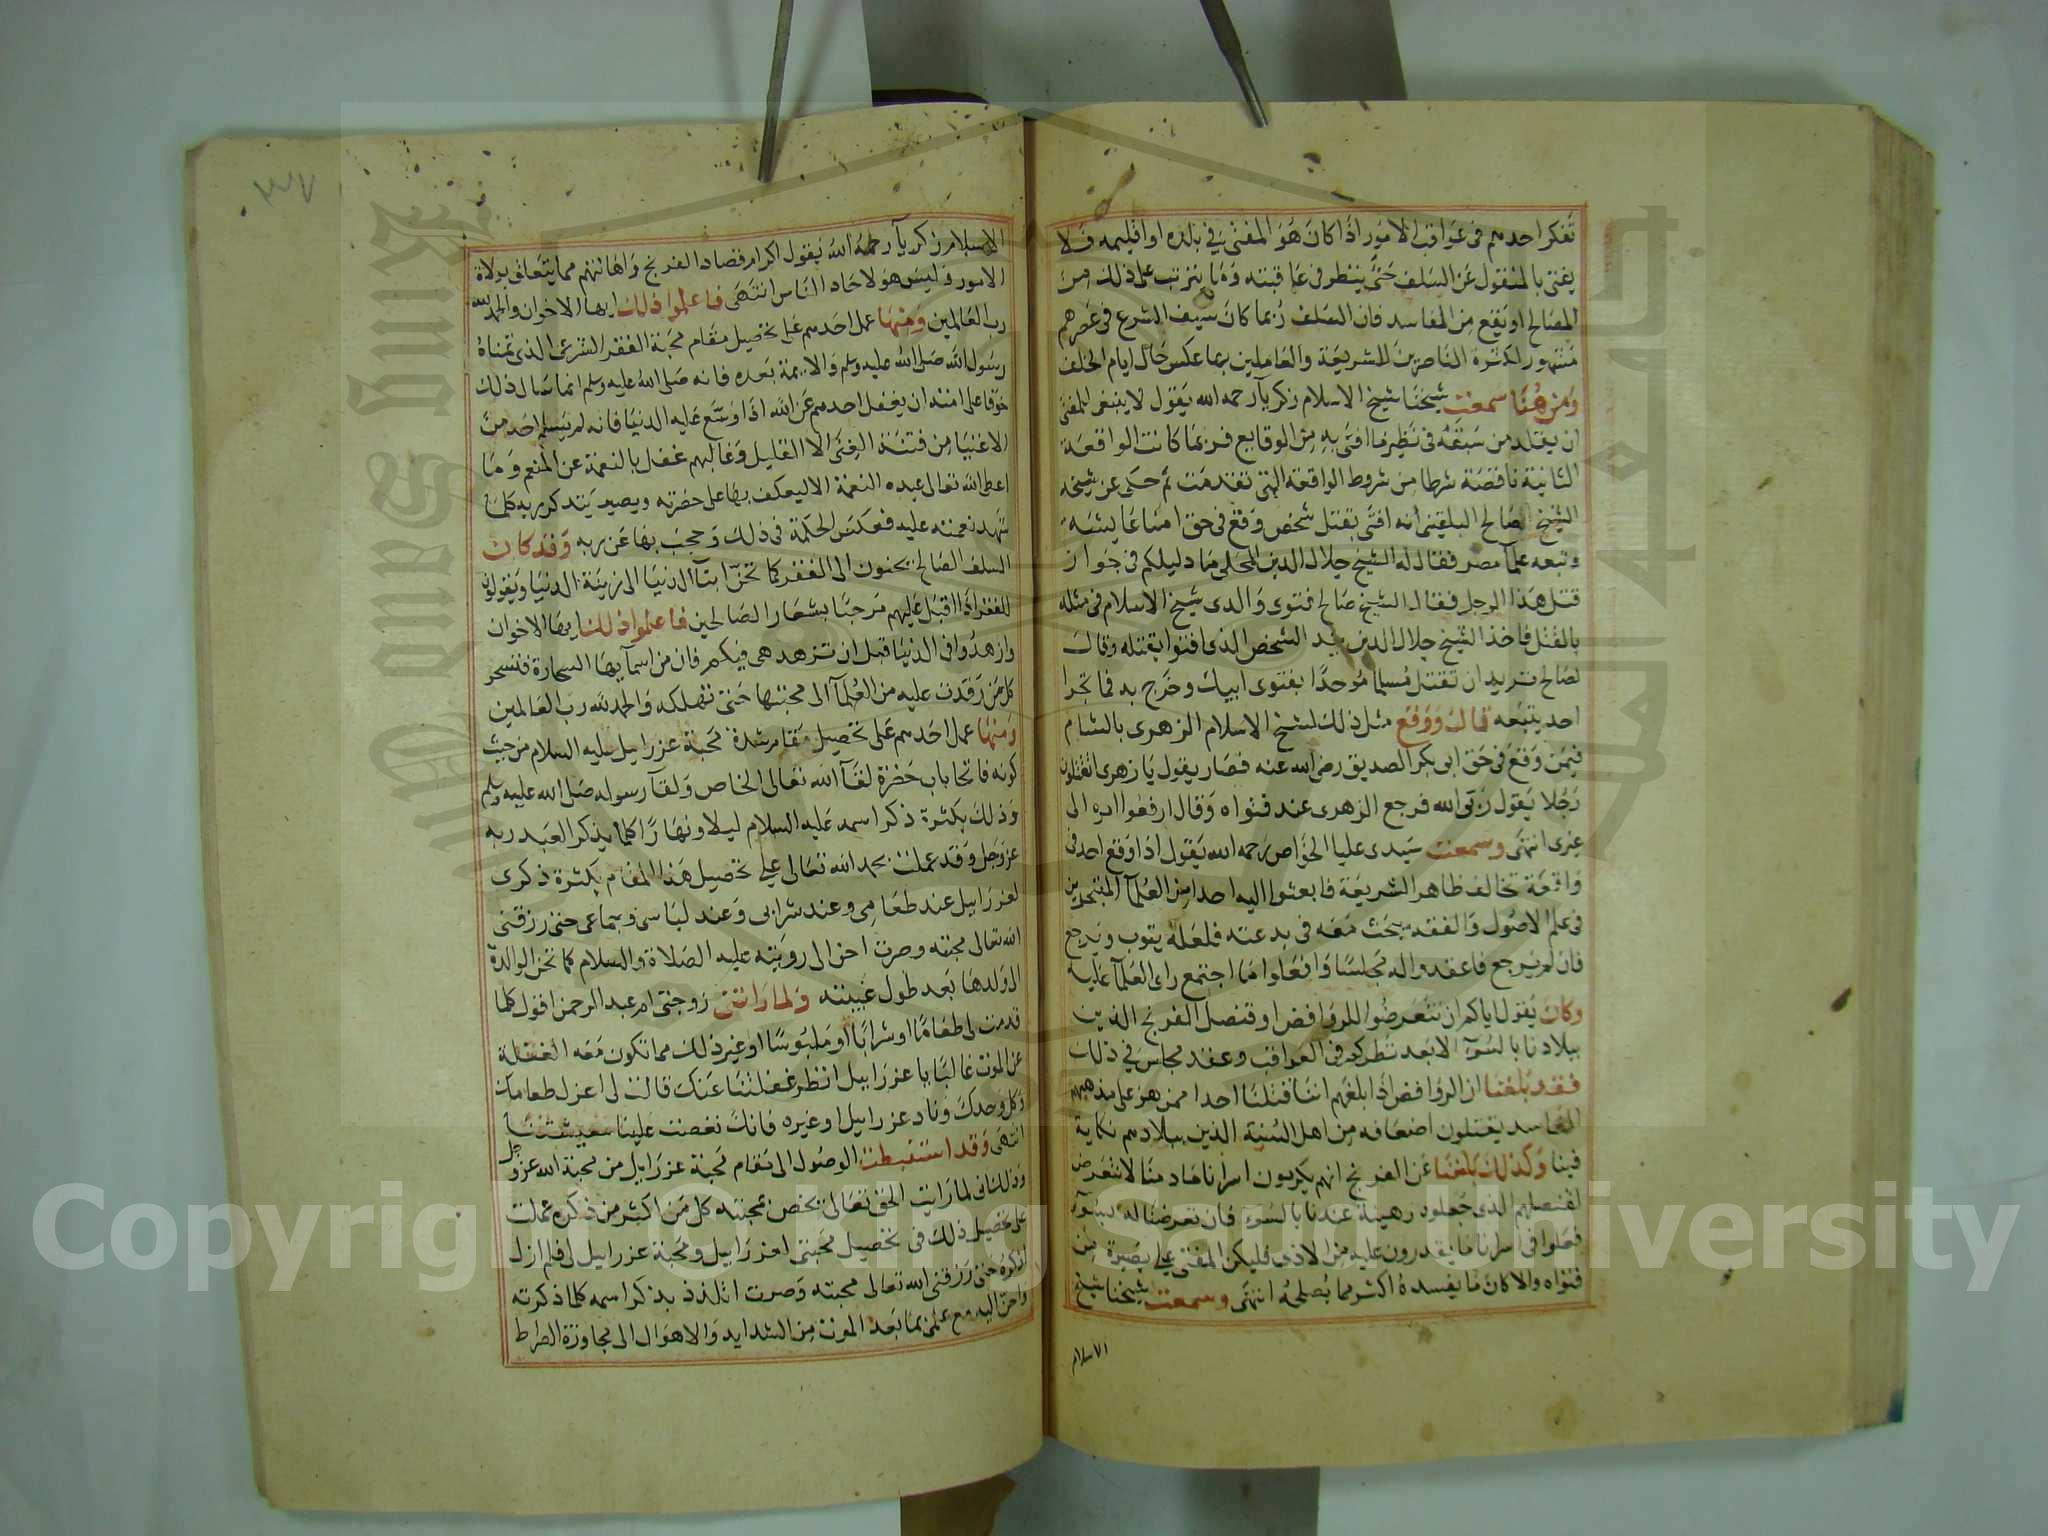 تفكر احدهم في عواقب الامور اذا كان هو المفتي في بلده او اقليمه فلا
يفتي بالمنقول عن السلف حتى ينظر في عاقبته وما يترتب على ذلك من
المصالح او يقع من المفاسد فان السلف ربما كان سيف الشرع في عصرهم
مشهور لكثرة الناصرين للشريعة والعاملين بها عكس حال ايام الخلف
ومن هنا سمعت شيخنا شيخ الاسلام زكريا رحمه الله يقول لا ينبغي للمفتي
ان يقلد من سبقه في نظير ما افتى به من الوقايع فربما كانت الواقعة
الثانية ناقصة شرطا من شروط الواقعة التي تقدمت ثم حكى عن شيخه
الشيخ صالح البلقيني انه افتى بقتل شخص وقع في حق
وتبعه علما مصر فقال له الشيخ جلال الدين المحلي ما دليلكم في جواز
قتل هذا الرجل فقال الشيخ صالح فتوى والدي شيخ الاسلام في مثله
بالقتل فاخذ الشيخ جلال الدين بيد الشخص الذي افتوا بقتله وقال
لصالح تريد ان تقتل مسلما موحدا بفتوى ابيك وخرج به فما تجرا
احد يتبعه قال ووقع مثل ذلك لشيخ الاسلام الزهري بالشام
فيمن وقع في حق ابي بكر الصديق رضي الله عنه فصار يقول يا زهري اتقتلون
رجلا يقول ربي الله فرجع الزهري عند فتواه وقال ارفعوا امره الى
غيري انتهى وسمعت سيدي عليا الخواص رحمه الله يقول اذا وقع احد في
واقعة تخالف ظاهر الشريعة فابعثوا اليه احدا من العلما المتبحرين
في علم الاصول والفقه يبحث معه في بدعته فلعله يتوب ويرجع
فان لم يرجع فاعقدوا له مجلسا وافعلوا ما اجتمع راي العلما عليه
وكان يقول اياكم ان تتعرضوا للروافض او قنصل الفرنج الذين
ببلادنا بالسوء الا بعد نظركم في العواقب وعقد مجلس في ذلك
فقد بلغنا ان الروافض اذا بلغهم اننا قتلنا احدا ممن هو على مذهبهم
الفاسد يقتلون اضعافه من اهل السنة الذين ببلادهم نكاية
فينا وكذلك بلغنا عن الفرنج انهم يكرمون اسرانا ما دمنا لا نتعرض
لقنصلهم الذي جعلوه رهينة عندنا بالسوء فان تعرضنا له بسوء
فعلوا في اسرانا ما يقدرون عليه من الاذى فليكن المفتي على بصيرة من
فتواه والا كان ما يفسده اكثر مما يصلحه انتهى وسمعت شيخنا شيخ
الاسلام
الاسلام زكريا رحمه الله يقول اكرام قصاد الفرنج واهانتهم مما يتعلق بولاة
الامور وليس هو لاحاد الناس انتهى فاعلموا ذلك ايها الاخوان والحمد لله
رب العالمين ومنها عمل احدهم على تحصيل مقام محبة الفقر الشرعي الذي تمناه
رسول الله صلى الله عليه وسلم والايمة بعده فانه صلى الله عليه وسلم انما سال ذلك
خوفا على امته ان يغفل احدهم عن الله اذا وسع عليه الدنيا فانه لم يسلم احد من
الاغنيا من فتنة الغنى الا القليل وغالبهم غفل بالنعمة عن المنعم وما
اعطى الله تعالى عبده النعمة الا ليعكف بها على حضرته ويصير يتذكر ربه كلما
شهد نعمته عليه فعكس الحكمة في ذلك وحجب بها عن ربه وقد كان
السلف الصالح يحنون الى الفقر كما تحن ابنا الدنيا الى زينة الدنيا ويقولون
للفقر اذا اقبل عليهم مرحبا بشعار الصالحين فاعلموا ذلك ايها الاخوان
وازهدوا في الدنيا قبل ان تزهد هي فيكم فان من اسمايها السحارة فتسحر
كل من رقدت عليه من العلما الى محبتها حتى تهلكه والحمد لله رب العالمين
ومنها عمل احدهم على تحصيل مقام شدة محبة عزراييل عليه السلام من حيث
كونه فاتحا باب حضرة لقآ الله تعالى الخاص ولقآ رسوله صلى الله عليه وسلم
وذلك بكثرة ذكر اسمه عليه السلام ليلا ونهارا كما يذكر العبد ربه
عز وجل وقد عملت بحمد الله تعالى على تحصيل هذا المقام بكثرة ذكري
لعزراييل عند طعامي وعند شرابي وعند لباسي وجماعي حتى رزقني
الله تعالى محبته وصرت احن الى رويته عليه الصلاة والسلام كما تحن الوالدة
الى ولدها بعد طول غيبته ولما راتني زوجتي ام عبد الرحمن اقول كلما
قدمت لي طعاما او شرابا او ملبوسا او غير ذلك مما تكون معه الغفلة
عن الموت غالبا يا عزراييل انظر غفلتنا عنك قالت لي اعزل طعامك
وكل وحدك وناد عزراييل او غيره فانك نغصت علينا معيشتنا
انتهى وقد استنبطت الوصول الى مقام محبة عزراييل من محبة الله عز وجل
وذلك اني لما رايت الحق تعالى يخص بمحبته كل من اكثر من ذكره عملت
على تحصيل ذلك في تحصيل محبتي لعزراييل ومحبة عزراييل لي فلم ازل
اذكره حتى رزقني الله تعالى محبته وصرت اتلذذ بذكر اسمه كلما ذكرته
واحن اليه مع علمي بما بعد الموت من الشدايد والاهوال الى مجاوزة الصراط
Copyright © King Saud University